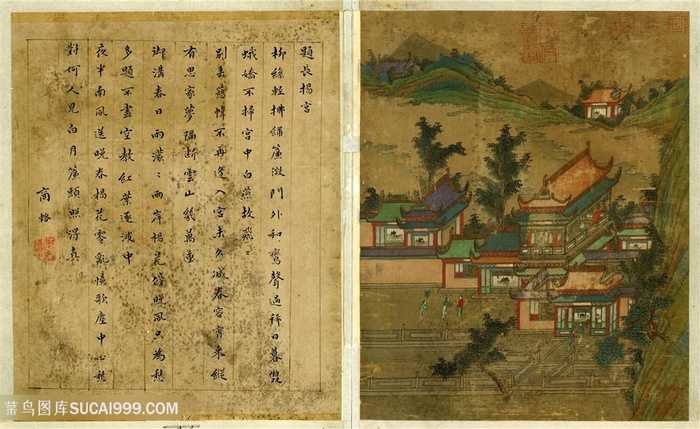 題長楊宮
柳絲輕拂鋪簾微門外和鸞聲過稀日暮雙
蛾嬌不掃宮中白燕故飛飛
別去薇帷不再逢入宮未久減春容宵來縱
有思家夢隔斷雲山幾萬重
御溝春日雨濛濛兩岸楊花傍晚風只為愁
多題不盡空教紅葉逐波中
夜半南風送晚春楊花零亂憶歌塵中心愁
對何人見向月簾頭照得真
商輅
菜鸟图库SUCAI999.COM